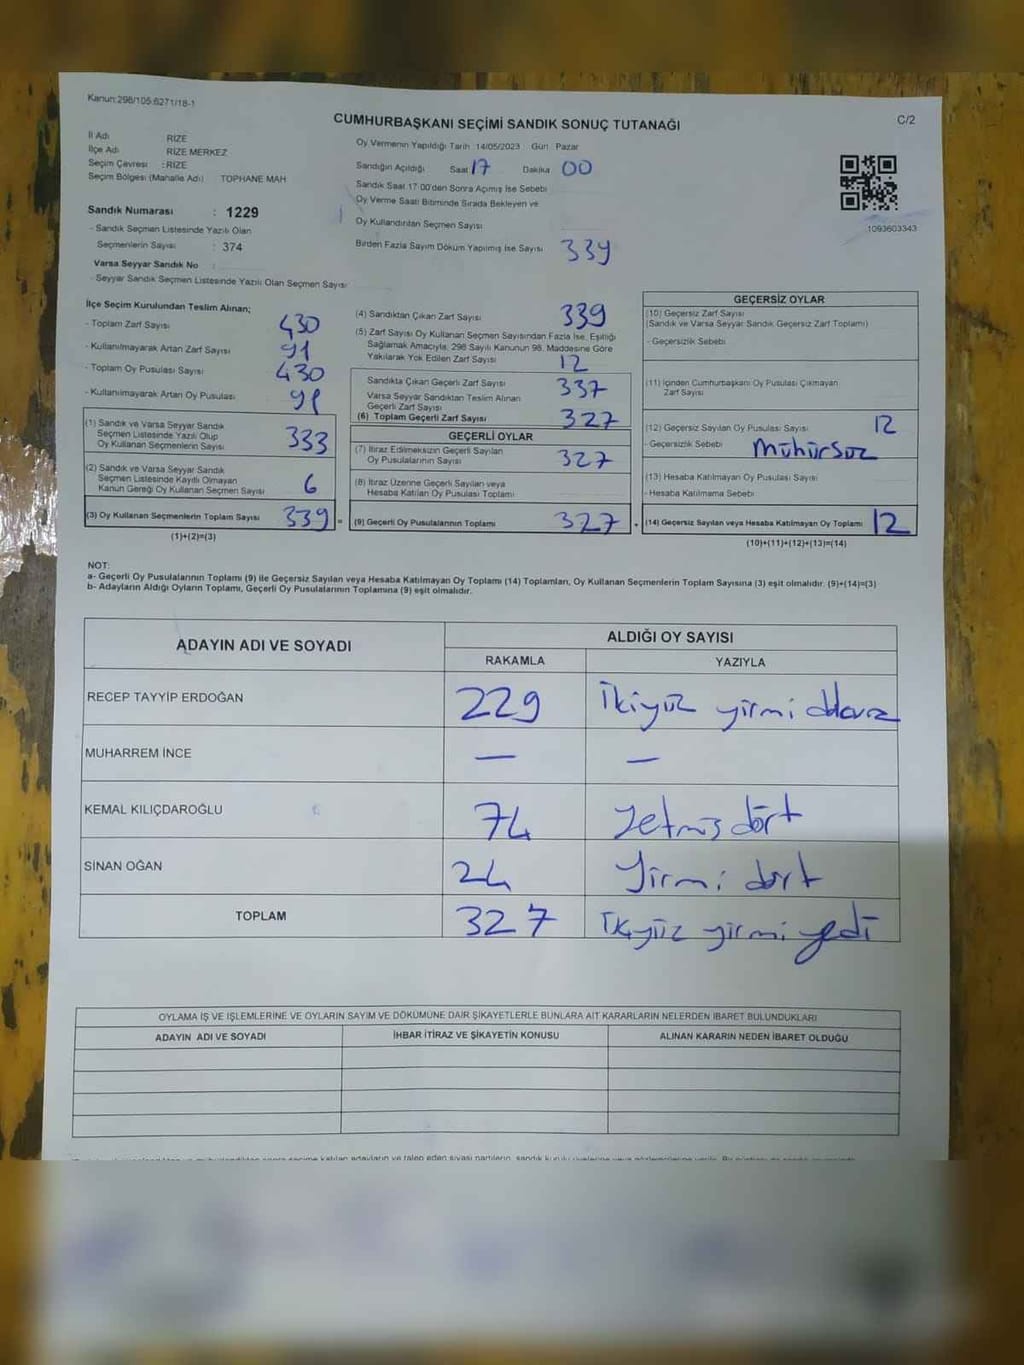 Kanun:298/105.6271/18-1
CUMHURBAŞKANI SEÇİMİ SANDIK SONUÇ TUTANAĞI
C/2
İl Adı RİZE
İlçe Adı RİZE MERKEZ
Seçim Çevresi :RİZE
Seçim Bölgesi (Mahalle Adı) TOPHANE MAH
Sandık Numarası : 1229
- Sandık Seçmen Listesinde Yazılı Olan
Seçmenlerin Sayısı : 374
Varsa Seyyar Sandık No :
- Seyyar Sandık Seçmen Listesinde Yazılı Olan Seçmen Sayısı
Oy Vermenin Yapıldığı Tarih 14/05/2023 Gün Pazar
Sandığın Açıldığı Saat 17 Dakika 00
Sandık Saat 17 00'den Sonra Açımış İse Sebebi
Oy Verme Saati Bitiminde Sırada Bekleyen ve
Oy Kullandırılan Seçmen Sayısı
Birden Fazla Sayım Döküm Yapılmış İse Sayısı 339
1093603343
İlçe Seçim Kurulundan Teslim Alınan;
- Toplam Zarf Sayısı 430
- Kullanılmayarak Artan Zarf Sayısı 91
- Toplam Oy Pusulası Sayısı 430
- Kullanılmayarak Artan Oy Pusulası 91
(1) Sandık ve Varsa Seyyar Sandık
Seçmen Listesinde Yazılı Olup
Oy Kullanan Seçmenlerin Sayısı 333
(2) Sandık ve Varsa Seyyar Sandık
Seçmen Listesinde Kayıtlı Olmayan
Kanun Gereği Oy Kullanan Seçmen Sayısı 6
(3) Oy Kullanan Seçmenlerin Toplam Sayısı 339 =
(1)+(2)=(3)
(4) Sandıktan Çıkan Zarf Sayısı 339
(5) Zarf Sayısı Oy Kullanan Seçmen Sayısından Fazla İse, Eşitliği
Sağlamak Amacıyla, 298 Sayılı Kanunun 98. Maddesine Göre
Yakılarak Yok Edilen Zarf Sayısı 12
Sandıkta Çıkan Geçerli Zarf Sayısı 337
Varsa Seyyar Sandıktan Teslim Alınan
Geçerli Zarf Sayısı
(6) Toplam Geçerli Zarf Sayısı 327
GEÇERLİ OYLAR
(7) İtiraz Edilmeksizin Geçerli Sayılan
Oy Pusulalarının Sayısı 327
(8) İtiraz Üzerine Geçerli Sayılan veya
Hesaba Katılan Oy Pusulası Toplamı
(9) Geçerli Oy Pusulalarının Toplamı 327
GEÇERSİZ OYLAR
(10) Geçersiz Zarf Sayısı
(Sandık ve Varsa Seyyar Sandık Geçersiz Zarf Toplamı)
- Geçersizlik Sebebi
(11) İçinden Cumhurbaşkanı Oy Pusulası Çıkmayan
Zarf Sayısı
(12) Geçersiz Sayılan Oy Pusulası Sayısı 12
- Geçersizlik Sebebi Mühürsüz
(13) Hesaba Katılmayan Oy Pusulası Sayısı
- Hesaba Katılmama Sebebi
(14) Geçersiz Sayılan veya Hesaba Katılmayan Oy Toplamı 12
(10)+(11)+(12)+(13)=(14)
NOT:
a- Geçerli Oy Pusulalarının Toplamı (9) ile Geçersiz Sayılan veya Hesaba Katılmayan Oy Toplamı (14) Toplamları, Oy Kullanan Seçmenlerin Toplam Sayısına (3) eşit olmalıdır. (9)+(14)=(3)
b- Adayların Aldığı Oyların Toplamı, Geçerli Oy Pusulalarının Toplamına (9) eşit olmalıdır.
ADAYIN ADI VE SOYADI
ALDIĞI OY SAYISI
RAKAMLA YAZIYLA
RECEP TAYYİP ERDOĞAN 229 İkiyüz yirmi dokuz
MUHARREM İNCE — —
KEMAL KILIÇDAROĞLU 74 Yetmiş dört
SİNAN OĞAN 24 Yirmi dört
TOPLAM 327 İkiyüz yirmi yedi
OYLAMA İŞ VE İŞLEMLERİNE VE OYLARIN SAYIM VE DÖKÜMÜNE DAİR ŞİKAYETLERLE BUNLARA AİT KARARLARIN NELERDEN İBARET BULUNDUKLARI
ADAYIN ADI VE SOYADI İHBAR İTİRAZ VE ŞİKAYETİN KONUSU ALINAN KARARIN NEDEN İBARET OLDUĞU